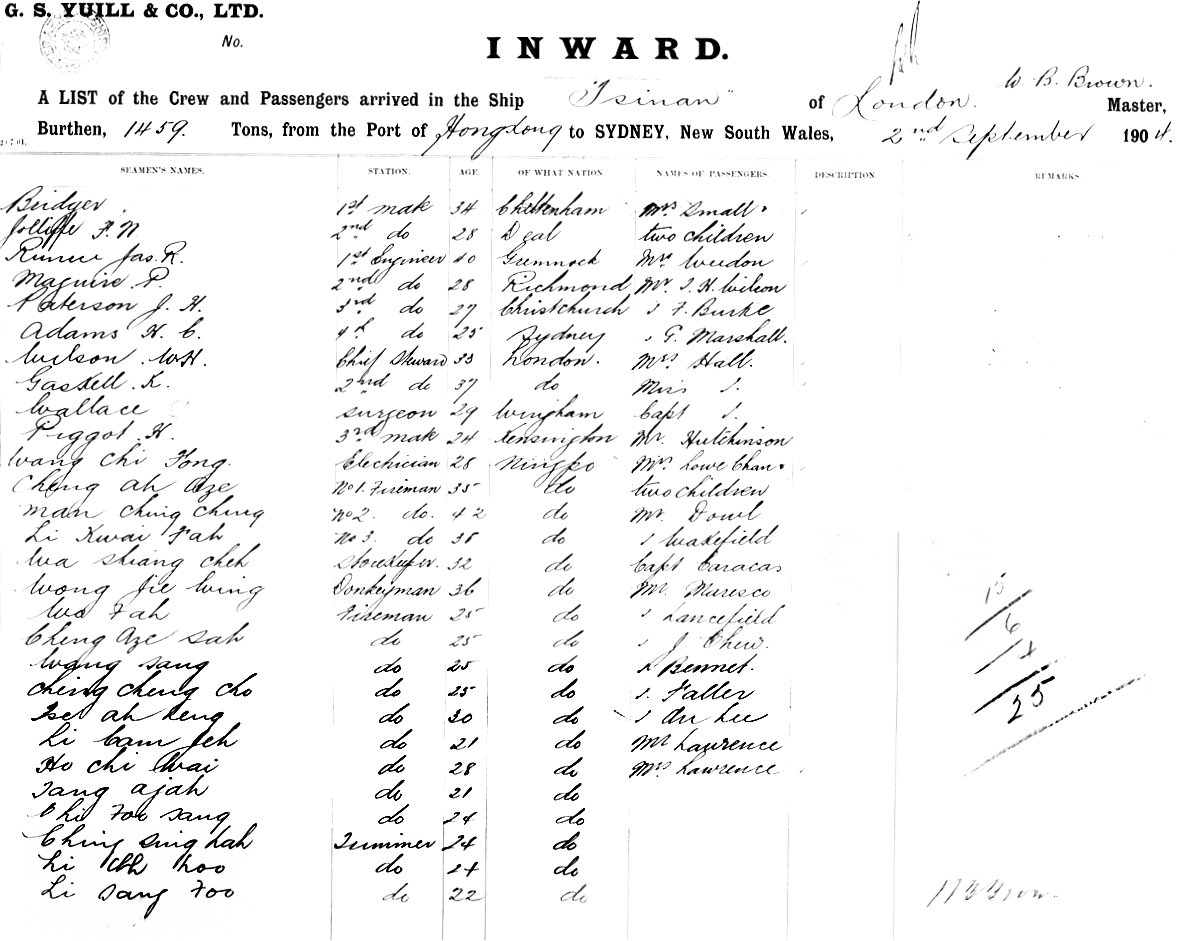 G. S. YUILL & CO., LTD.
No.
INWARD.
W. B. Brown.
A LIST of the Crew and Passengers arrived in the Ship "Tsinan" of London. Master,
Burthen, 1459. Tons, from the Port of Hongkong to SYDNEY, New South Wales, 2nd September 1904.
SEAMEN'S NAMES. STATION. AGE. OF WHAT NATION NAMES OF PASSENGERS. DESCRIPTION. REMARKS.
Bridger 1st mate 34 Cheltenham Mrs Small &
Jolliffe F. N 2nd do 28 Deal two children
Jas. R. 1st Engineer 40 Greenock Mrs Weedon
Maguire P. 2nd do 28 Richmond Mr. J. H. Wilson
Paterson J. H. 3rd do 27 Christchurch " F. Burke
Adams H. C. 4th do 25 Sydney " G. Marshall.
Wilson W.H. Chief Steward 33 London. Mrs Hall.
Gaskell K. 2nd do 37 do Miss "
Wallace Surgeon 29 Wingham Capt "
Piggot H. 3rd mate 24 Kensington Mr. Hutchinson
Wang Chi Fong. Electrician 28 Ningpo Mrs Lowe Chan &
Cheng Ah Aze No 1. Fireman 35 do two children
Man Ching Ching No 2. do. 42 do Mr. Dowl
Li Kwai Fah No 3. do 38 do " Wakefield
Wa Shiang Cheh Storekeeper. 32 do Capt Caracas
Wong Jie Wing Donkeyman 36 do Mr. Maresco
Wo Fah Fireman 25 do " Lancefield
Cheng Aze Sah do 25 do " J. Chew.
Wang Sang do 25 do " Bennet.
Ching Cheng Cho do 25 do " Faller
Tse Ah Keng do 30 do " An Lee
Li Cam Jeh do 21 do Mr Lawrence
Ho Chi Wai do 28 do Mrs Lawrence
Tang Ajah do 21 do
Chi Foo Sang do 24 do
Ching Sing Hah Trimmer 24 do
Li Ah Hoo do 24 do
Li Sang Foo do 22 do
15
6
4
25